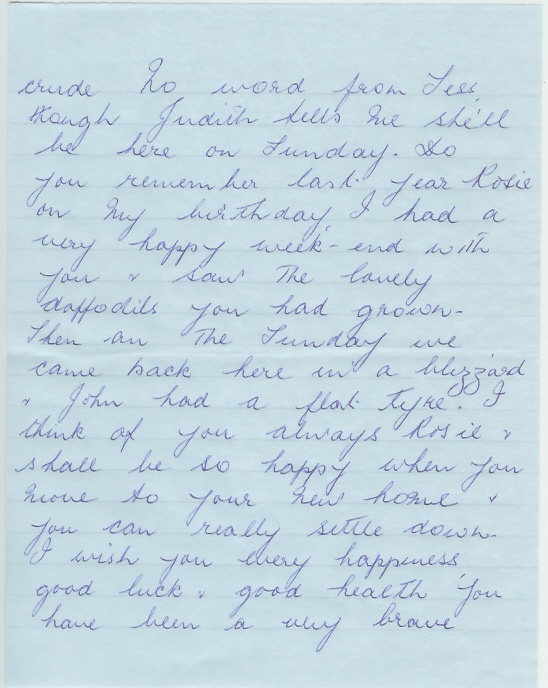 crude No word from Tess
though Judith tells me she'll
be here on Sunday. Do
you remember last year Rosie
on my birthday, I had a
very happy week-end with
you & saw the lovely
daffodils you had grown.
Then on the Sunday we
came back here in a blizzard
& John had a flat tyre. I
think of you always Rosie &
shall be so happy when you
move to your new home &
you can really settle down.
I wish you every happiness
good luck & good health you
have been a very brave